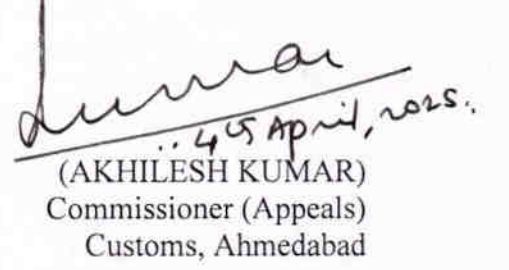 Kumar
4th April, 2025.
(AKHILESH KUMAR)
Commissioner (Appeals)
Customs, Ahmedabad